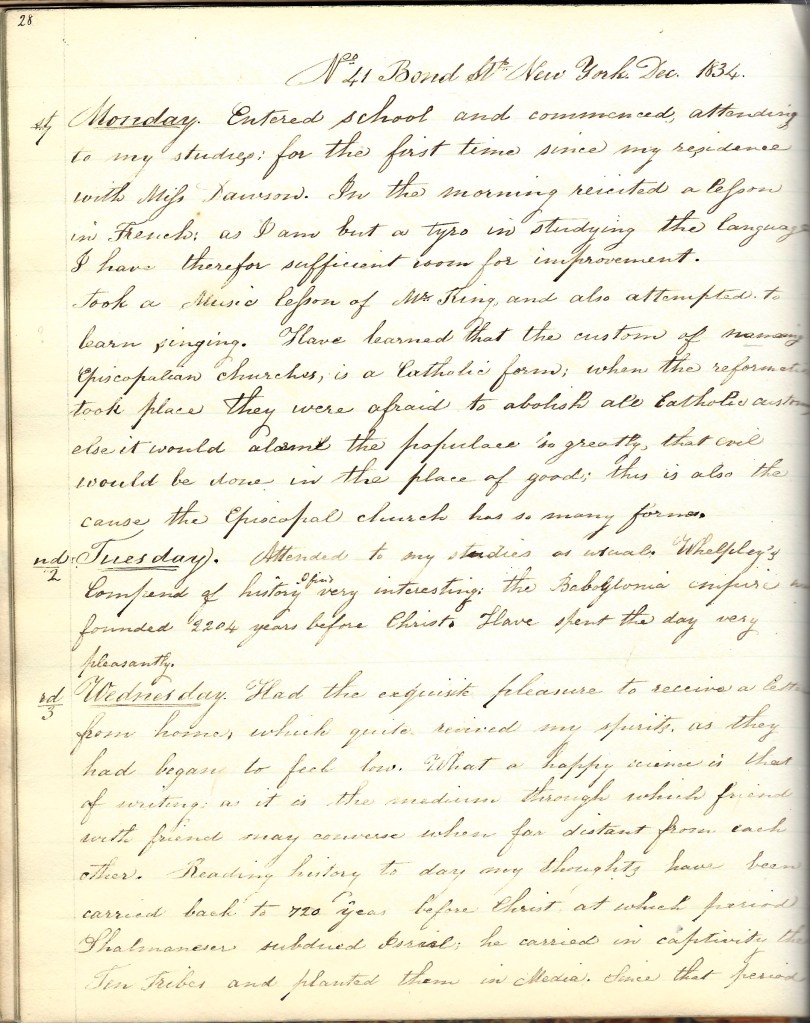 28
No 41 Bond St. New York. Dec. 1834.
st/1 Monday. Entered school and commenced, attending
to my studies; for the first time since my residence
with Miss Dawson. In the morning reicited a lesson
in French; as I am but a tyro in studying the language
I have therefor sufficient room for improvement.
Took a Music lesson of Mr King, and also attempted to
learn singing. Have learned that the custom of
Episcopalian churches, is a Catholic form; when the reformati
took place they were afraid to abolish all Catholic custom
else it would alarme the populace so greatly, that evil
would be done in the place of good; this is also the
cause the Episcopal church has so many forms.
nd/2 Tuesday. Attended to my studies as usual. Whelpley's
Compend of history I find very interesting; the Babylonia empire
founded 2204 years before Christ. Have spent the day very
pleasantly.
rd/3 Wednesday. Had the exquisite pleasure to receive a lette
from home, which quite revived my spirits, as they
had began to feel low. What a happy cience is that
of writing; as it is the medium through which friend
with friend may converse when far distant from each
other. Reading history to day my thoughts have been
carried back to 720 years before Christ at which period
Shalmaneser subdued Israel; he carried in captivity the
Ten Tribes and planted them in Media. Since that period